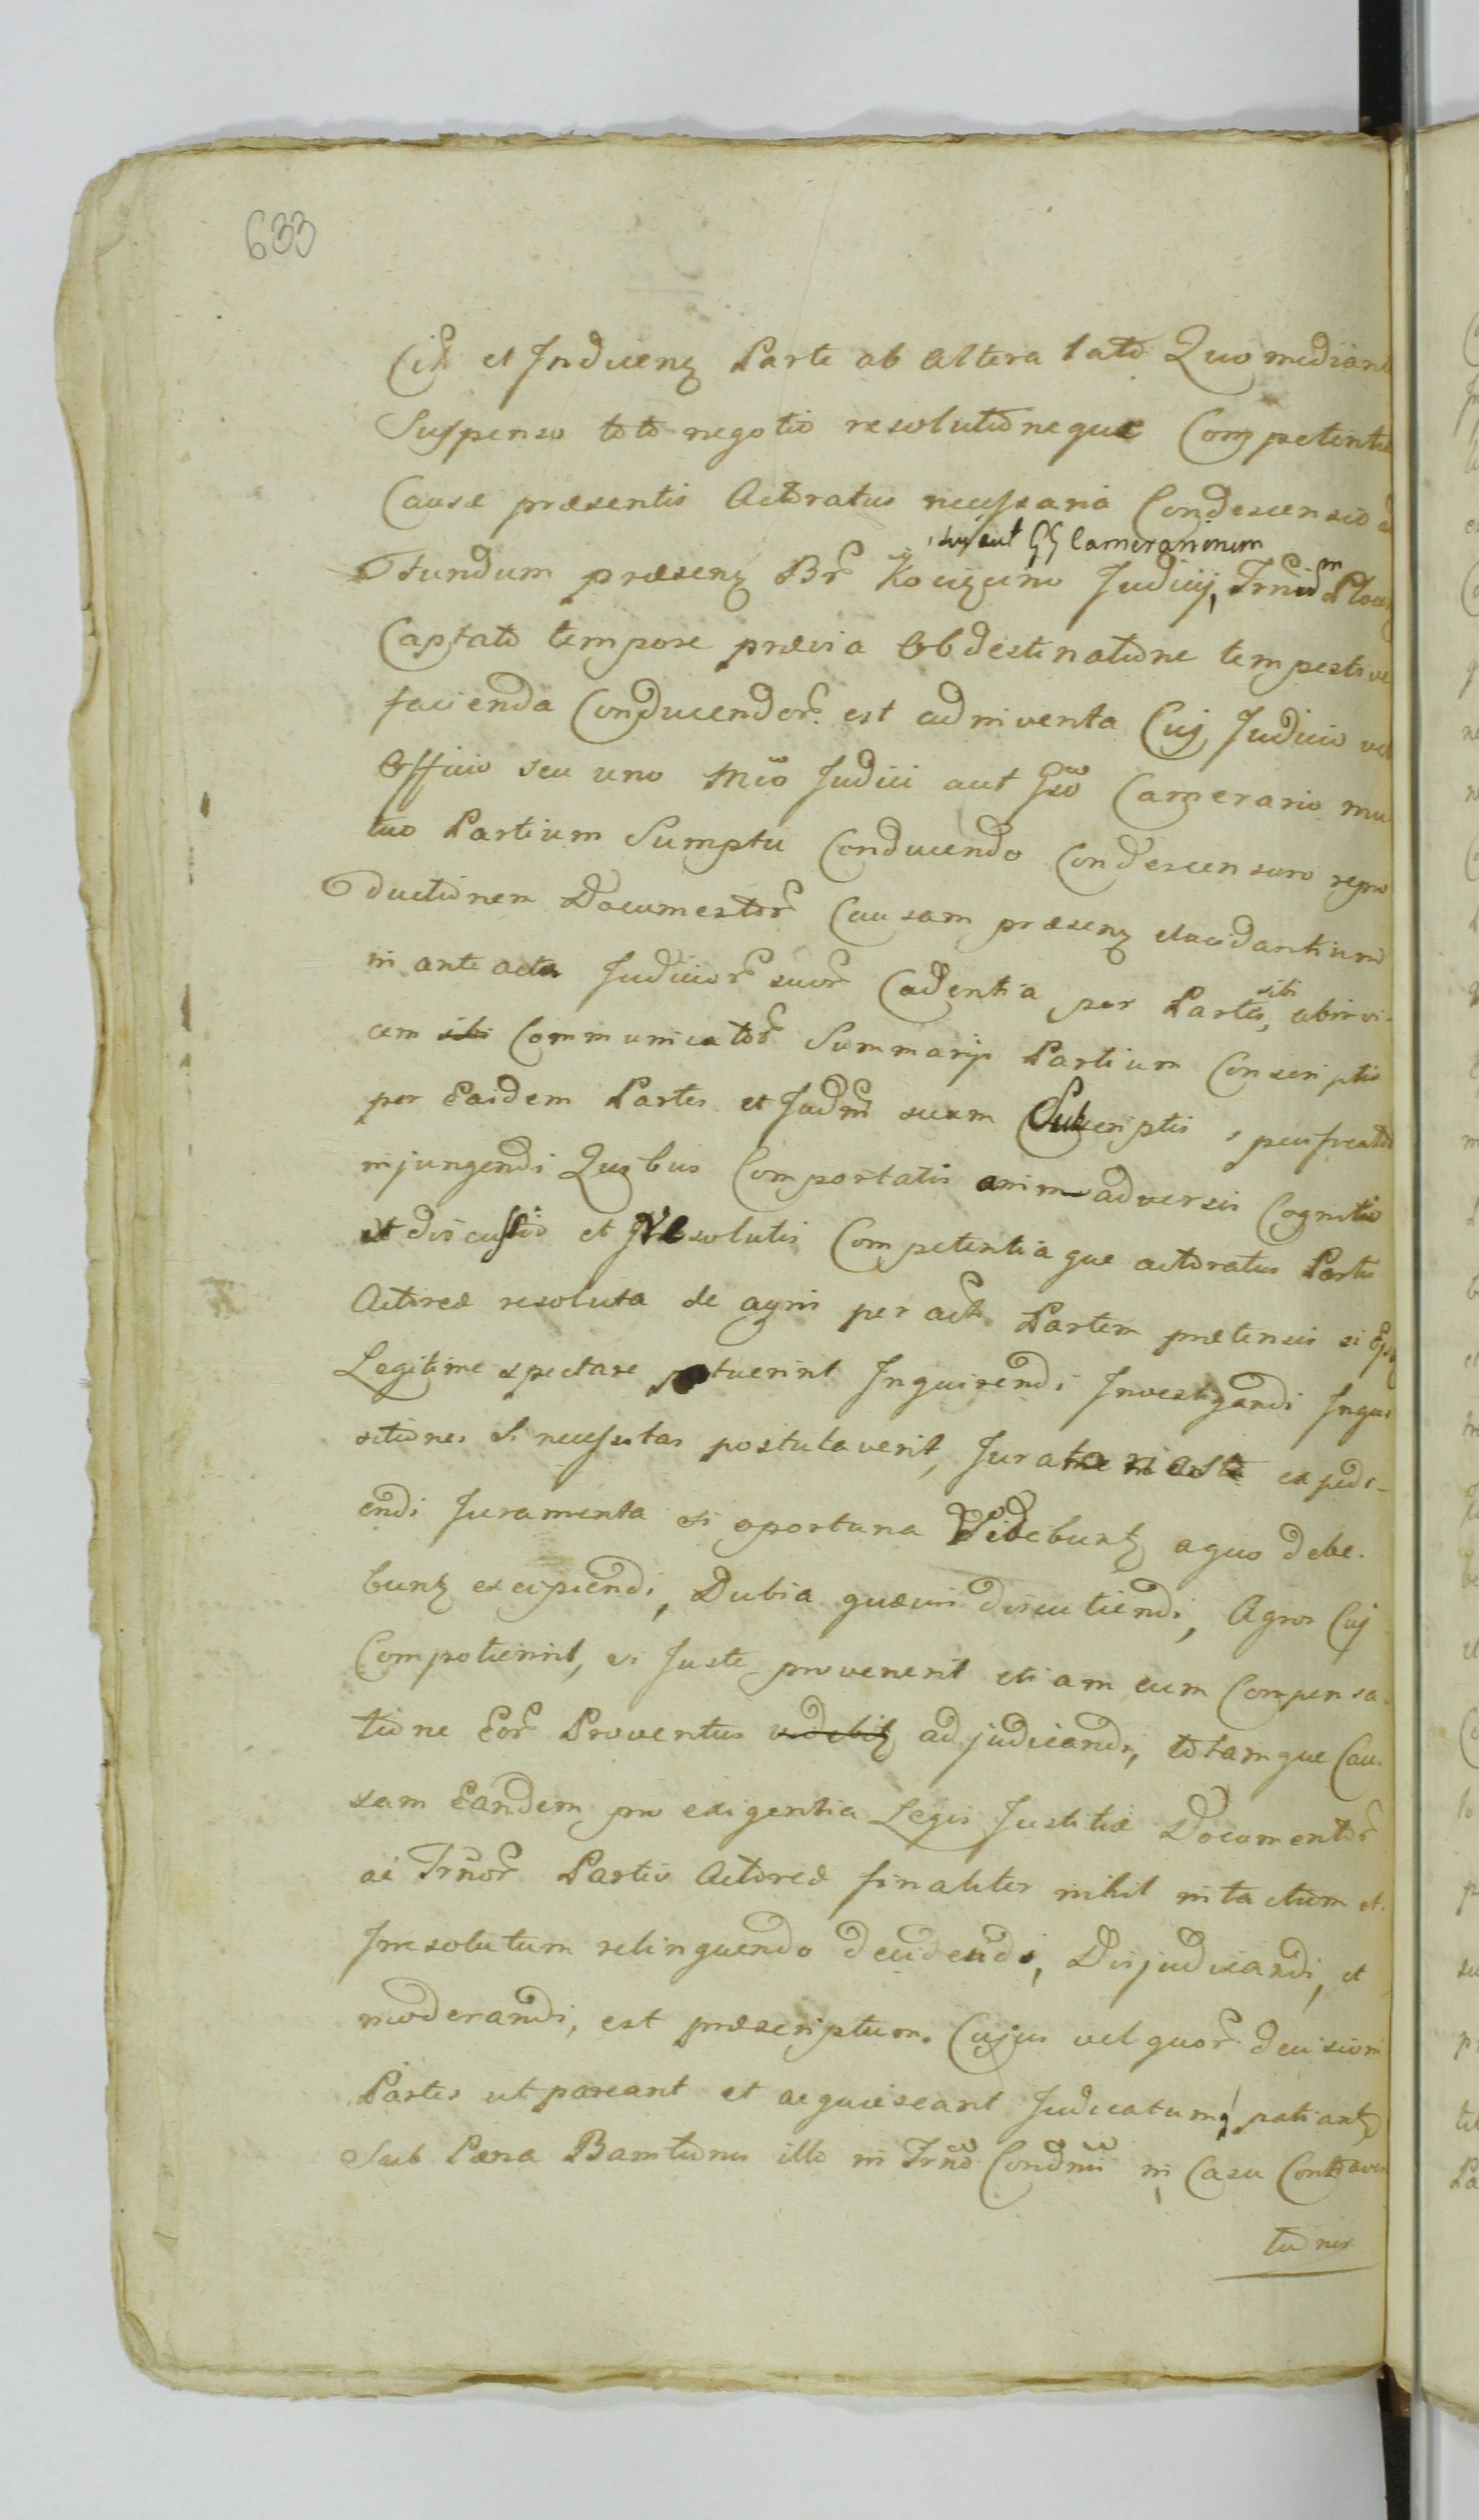 633
Citt et Inducenz Parte ab altera lato Quo mediante
Suspenso toto negotio resolutioneque Competentiæ
Causæ præsentis Actoratus necessaria Condescensio ad
sui aut GG Camerarionum
Fundum præsenz Br Kocięcino Judicij, Trnum Plocen
Captato tempore prævia Obdestinatione tempestive
facienda Conducendor est adinventa Cuj Judicio vel
Officio seu uno Mco Judici aut Gso Camerario mu
tuo Partium Sumptu Conducendo Condescensuro repro
ductionem Documentor Causam præsenz elucidantium
in ante acta Judicior suor Cadentia per Partes, sibi abinvi-
cem Communicator Summarijs Partium Conscriptis
per Easdem Partes et Judm suum Subscriptis specificator
injungendi Quibus Comportatis animadversis Cognitis
et discussis et Resolutis Competentiaque actoratus Partis
Actoreæ resoluta de agris per act Partem prætensis si Eju
Legitime spectare potuerint Inquirendi Investigandi Inqui
sitiones si necessitas postulaverit, expedi-
endi Juramenta si oportuna Videbunt a quo debe-
bunt excipiendi, Dubia quævis discutiendi, Agros Cuj
Competierint, si Juste provenerit etiam cum Compensa-
tione Eor Proventus adjudicandi, totamque Cau-
sam Eandem pro exigentia Legis Justitiæ Documentor
ac Trnor Partis Actoreæ finaliter nihil intactum et
Irresolutum relinquendo decidendi, Disjudicandi, et
moderandi, est præscriptum. Cujus vel quor decisioni
Partes ut pareant et acquiescant Judicatumq patiant
Sub Pæna Bannitionis illo in Trno Condmi in Casu Contraven
tionis